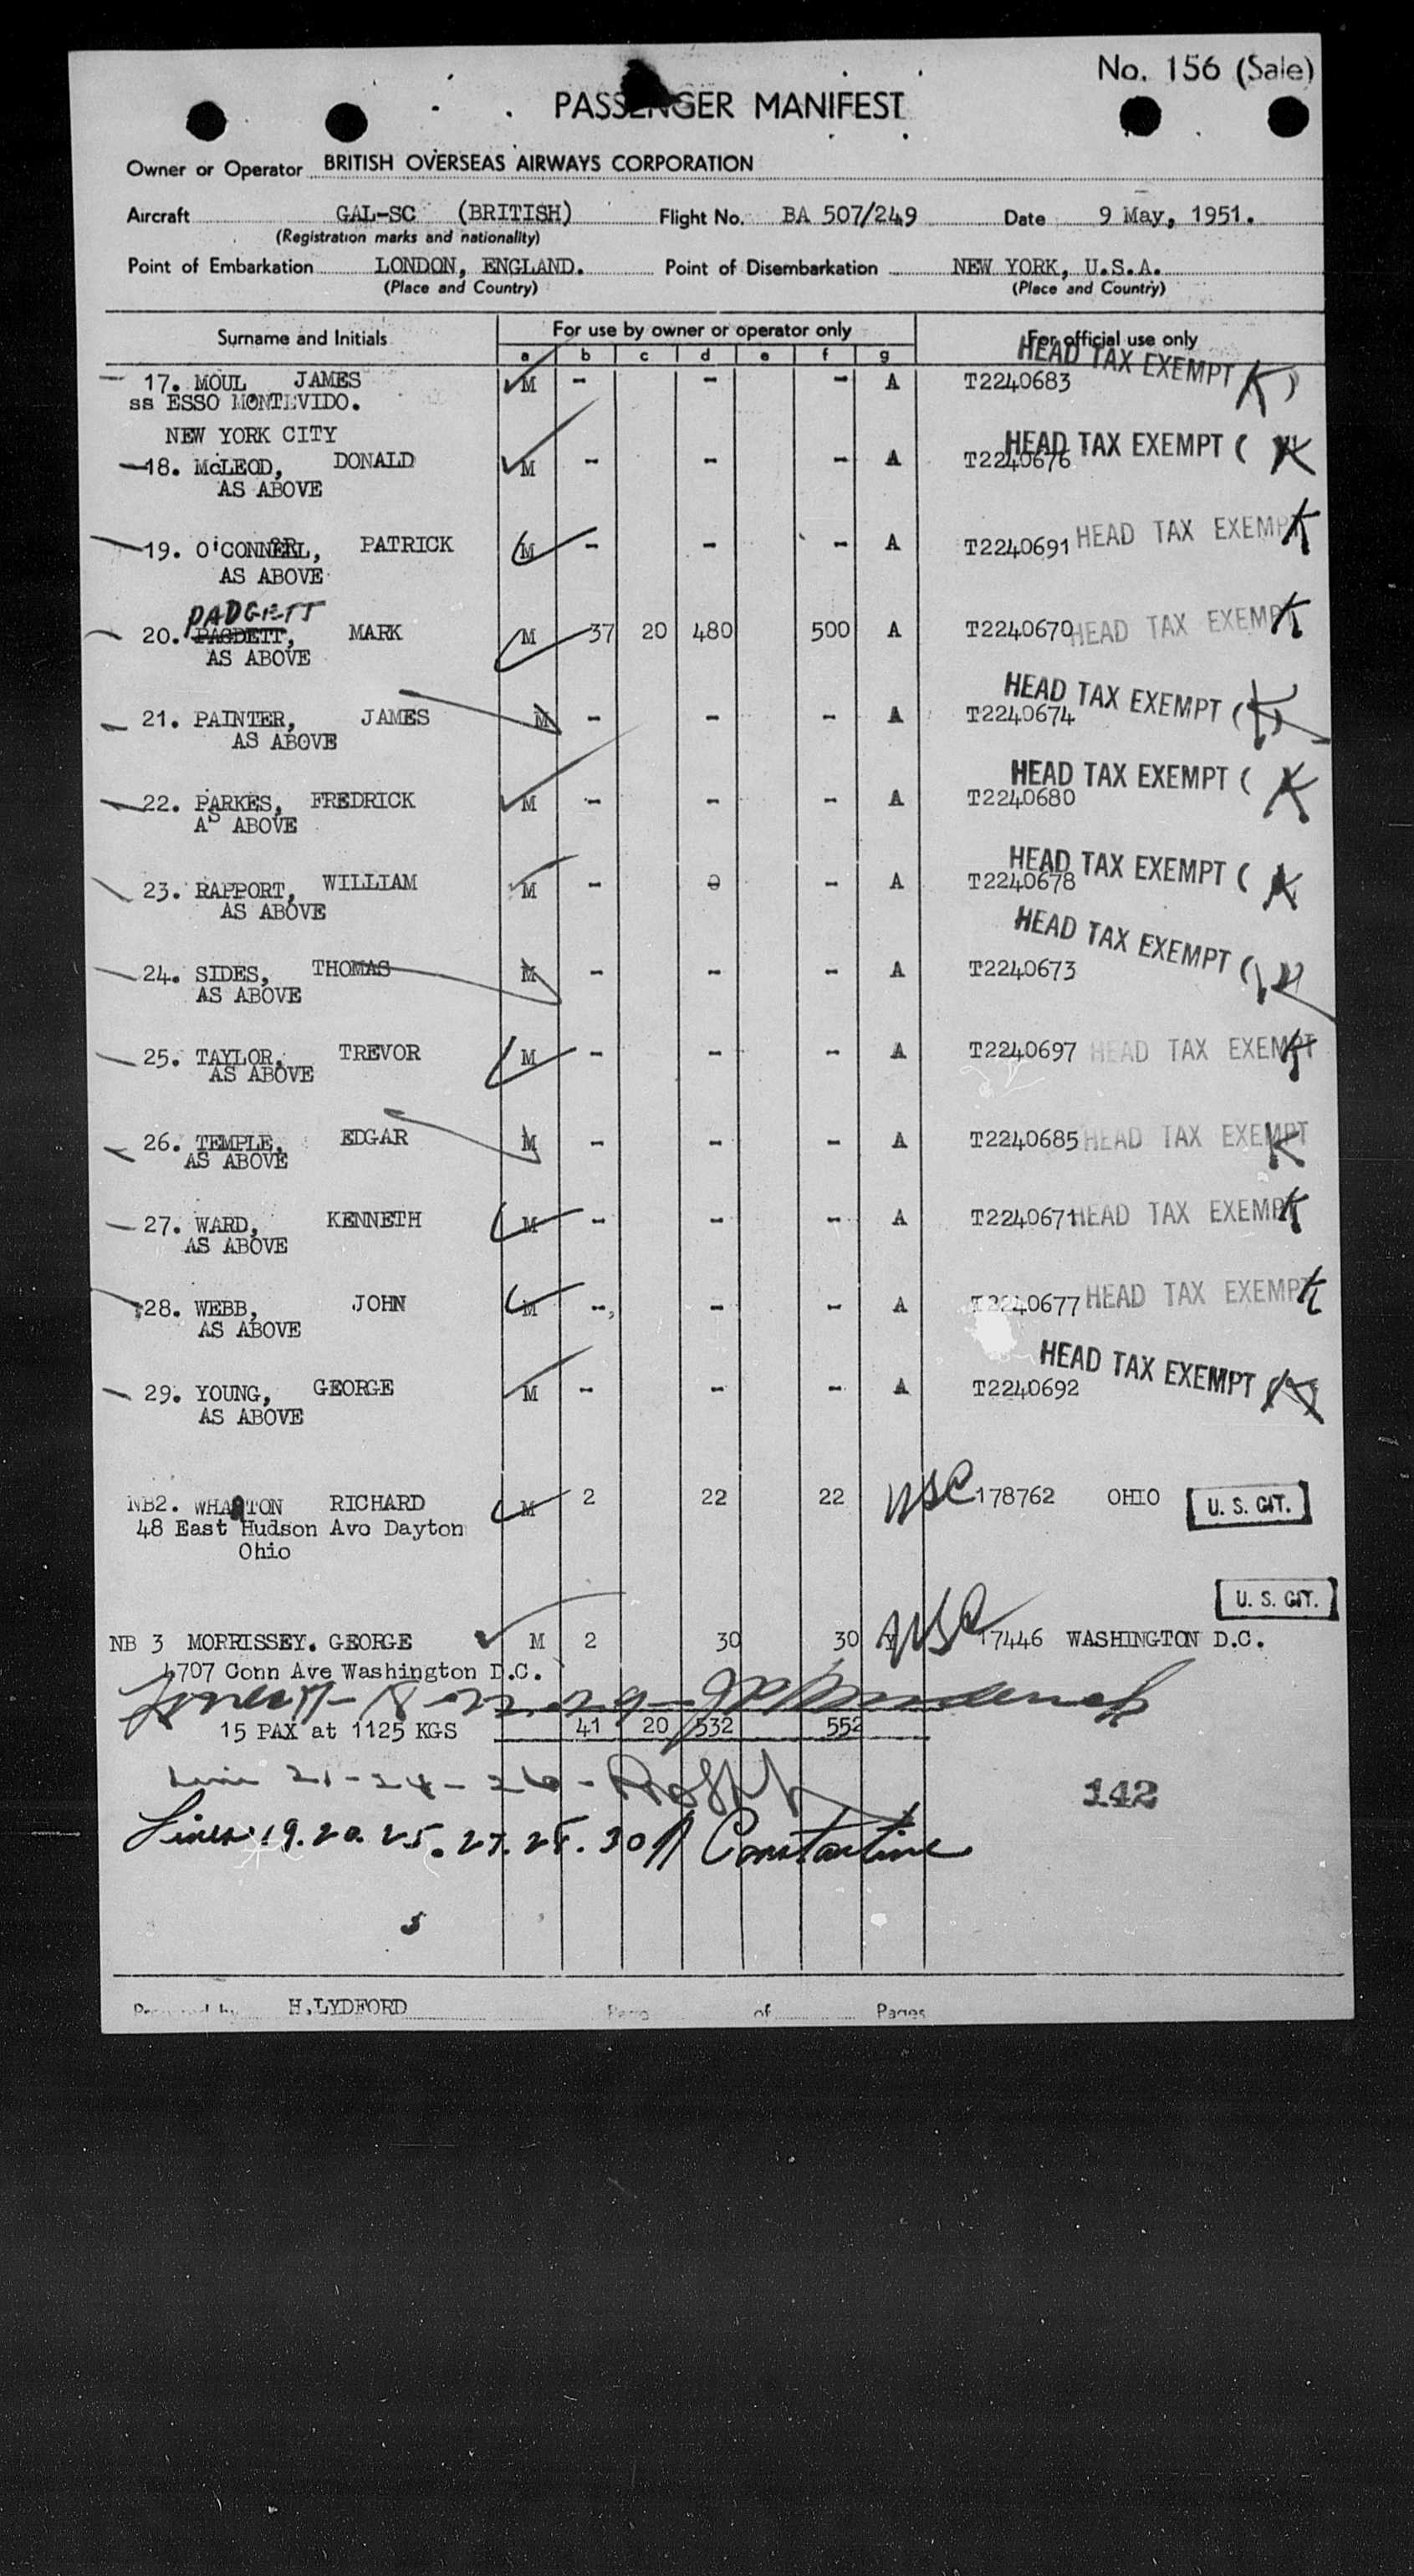 No. 156 (Sale)
PASSENGER MANIFEST
Owner or Operator BRITISH OVERSEAS AIRWAYS CORPORATION
Aircraft GAL-SC (BRITISH) Flight No. BA 507/249 Date 9 May, 1951.
(Registration marks and nationality)
Point of Embarkation LONDON, ENGLAND. Point of Disembarkation NEW YORK, U.S.A.
(Place and Country) (Place and Country)
Surname and Initials For use by owner or operator only For official use only
a b c d e f g
HEAD TAX EXEMPT K)
17. MOUL JAMES M - - - A T2240683
ss ESSO MONTEVIDO.
NEW YORK CITY
HEAD TAX EXEMPT ( K
18. McLEOD, DONALD M - - - A T2240676
AS ABOVE
19. O'CONNERL, PATRICK M - - - A T2240691 HEAD TAX EXEMPT K
AS ABOVE
PADGETT
20. PAGDETT, MARK M 37 20 480 500 A T2240670 HEAD TAX EXEMPT K
AS ABOVE
HEAD TAX EXEMPT (K)
21. PAINTER, JAMES M - - - A T2240674
AS ABOVE
HEAD TAX EXEMPT ( K
22. PARKES, FREDRICK M - - - A T2240680
AS ABOVE
HEAD TAX EXEMPT ( K
23. RAPPORT, WILLIAM M - - A T2240678
AS ABOVE
HEAD TAX EXEMPT (
24. SIDES, THOMAS M - - - A T2240673
AS ABOVE
25. TAYLOR, TREVOR M - - - A T2240697 HEAD TAX EXEMPT K
AS ABOVE
26. TEMPLE, EDGAR M - - - A T2240685 HEAD TAX EXEMPT K
AS ABOVE
27. WARD, KENNETH M - - - A T2240671 HEAD TAX EXEMPT K
AS ABOVE
28. WEBB, JOHN M - - - A T2240677 HEAD TAX EXEMPT K
AS ABOVE
HEAD TAX EXEMPT (
29. YOUNG, GEORGE M - - - A T2240692
AS ABOVE
NB2. WHARTON RICHARD M 2 22 22 USC 178762 OHIO U. S. CIT.
48 East Hudson Avo Dayton
Ohio
U. S. CIT.
NB 3 MORRISSEY. GEORGE M 2 30 30 USC 17446 WASHINGTON D.C.
4707 Conn Ave Washington D.C.
15 PAX at 1125 KGS 41 20 532 552
Line 21-24-26-
142
Lines 19.20.25.27.28.30 Constantine
5
Prepared by H.LYDFORD Page of Pages